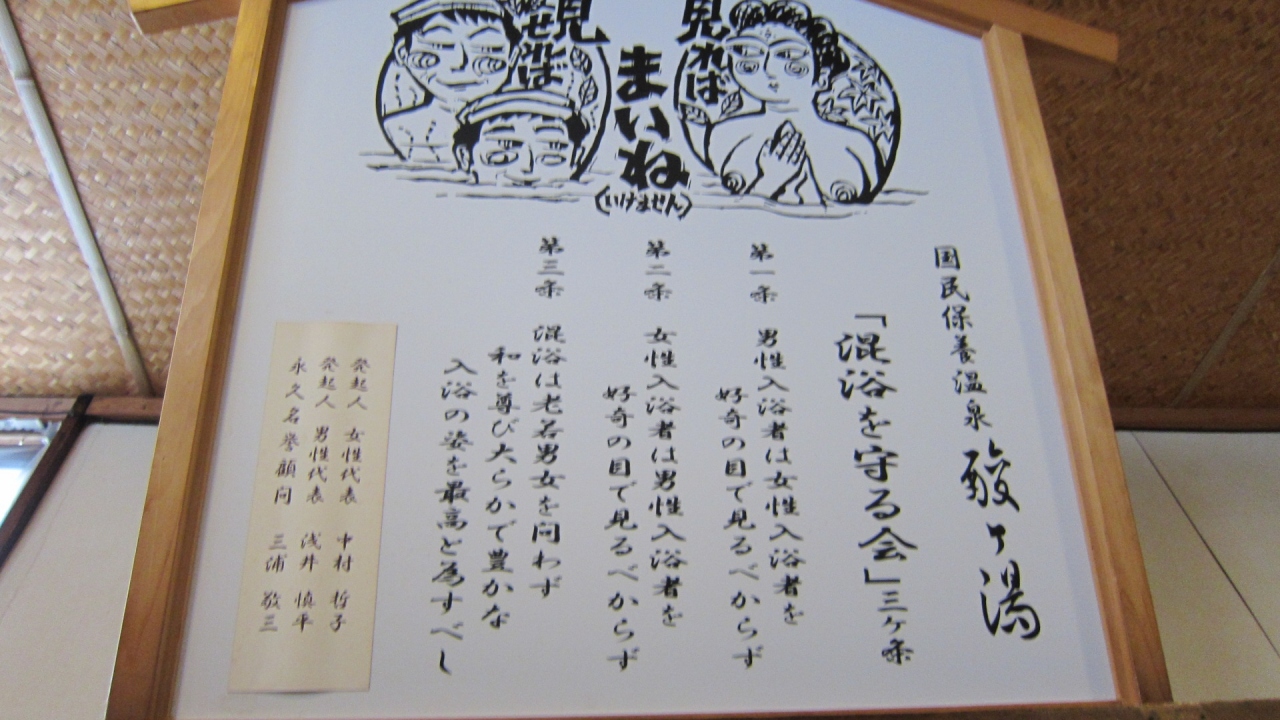 見れば
まいね
(いけません)
見せれば
国民保養温泉 酸ヶ湯
「混浴を守る会」三ヶ条
第一条 男性入浴者は女性入浴者を
好奇の目で見るべからず
第二条 女性入浴者は男性入浴者を
好奇の目で見るべからず
第三条 混浴は老若男女を問わず
和を尊び大らかで豊かな
入浴の姿を最高と為すべし
発起人 女性代表 中村 哲子
発起人 男性代表 浅井 慎平
永久名誉顧問 三浦 敬三